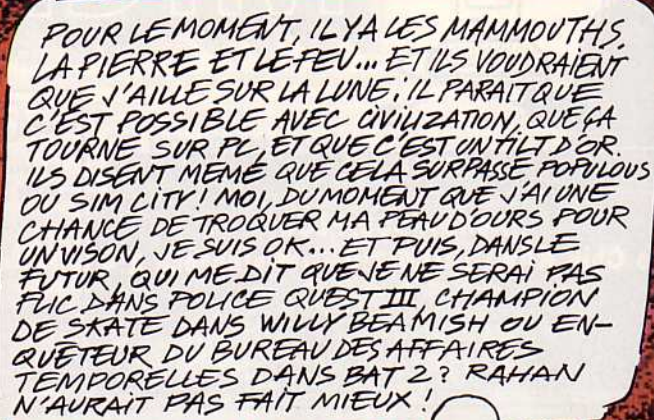 POUR LE MOMENT, IL Y A LES MAMMOUTHS,
LA PIERRE ET LE FEU... ET ILS VOUDRAIENT
QUE J'AILLE SUR LA LUNE; IL PARAIT QUE
C'EST POSSIBLE AVEC CIVILIZATION, QUE ÇA
TOURNE SUR PC, ET QUE C'EST UN TILT D'OR.
ILS DISENT MEME QUE CELA SURPASSE POPULOUS
OU SIM CITY! MOI, DU MOMENT QUE J'AI UNE
CHANCE DE TROQUER MA PEAU D'OURS POUR
UN VISON, JE SUIS OK... ET PUIS, DANS LE
FUTUR, QUI ME DIT QUE JE NE SERAI PAS
FLIC DANS POLICE QUEST III, CHAMPION
DE SKATE DANS WILLY BEAMISH OU EN-
QUÊTEUR DU BUREAU DES AFFAIRES
TEMPORELLES DANS BAT 2? RAHAN
N'AURAIT PAS FAIT MIEUX!